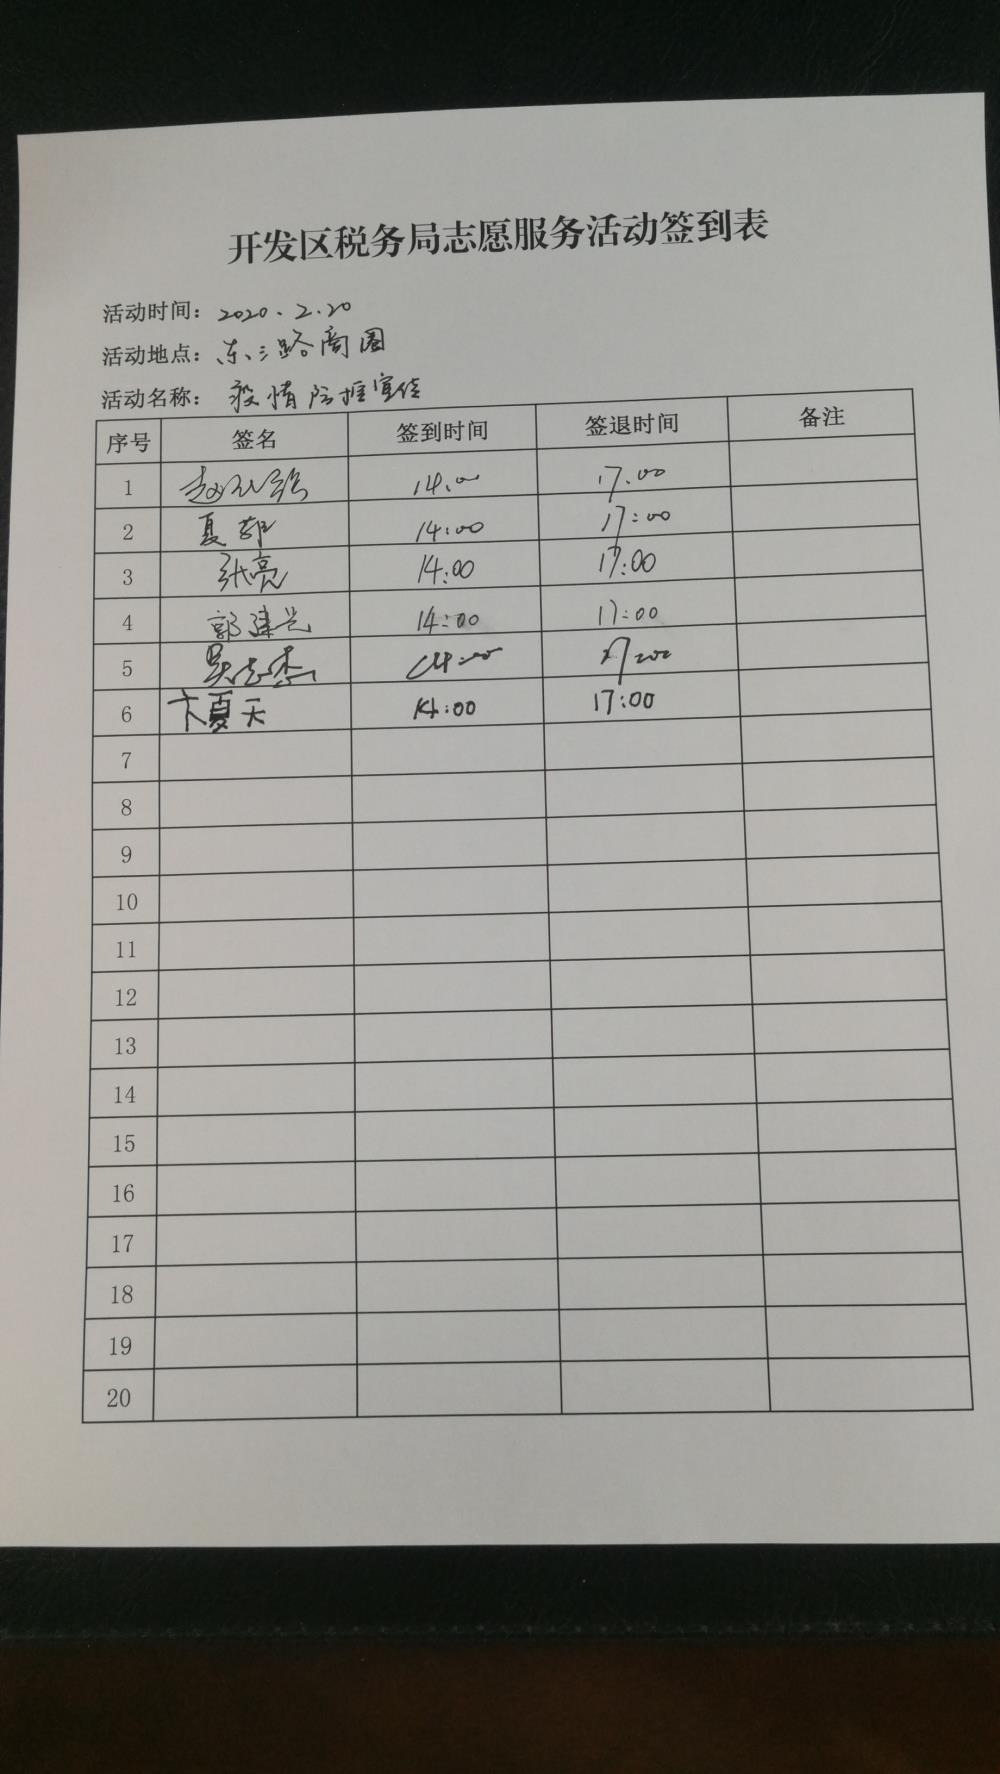 开发区税务局志愿服务活动签到表
活动时间：2020.2.20
活动地点：东三路商圈
活动名称：疫情防控宣传
序号 签名 签到时间 签退时间 备注
1 14:00 17:00
2 夏 14:00 17:00
3 张亮 14:00 17:00
4 郭建兴 14:00 17:00
5 吴志杰 14:00 17:00
6 卞夏天 14:00 17:00
7
8
9
10
11
12
13
14
15
16
17
18
19
20